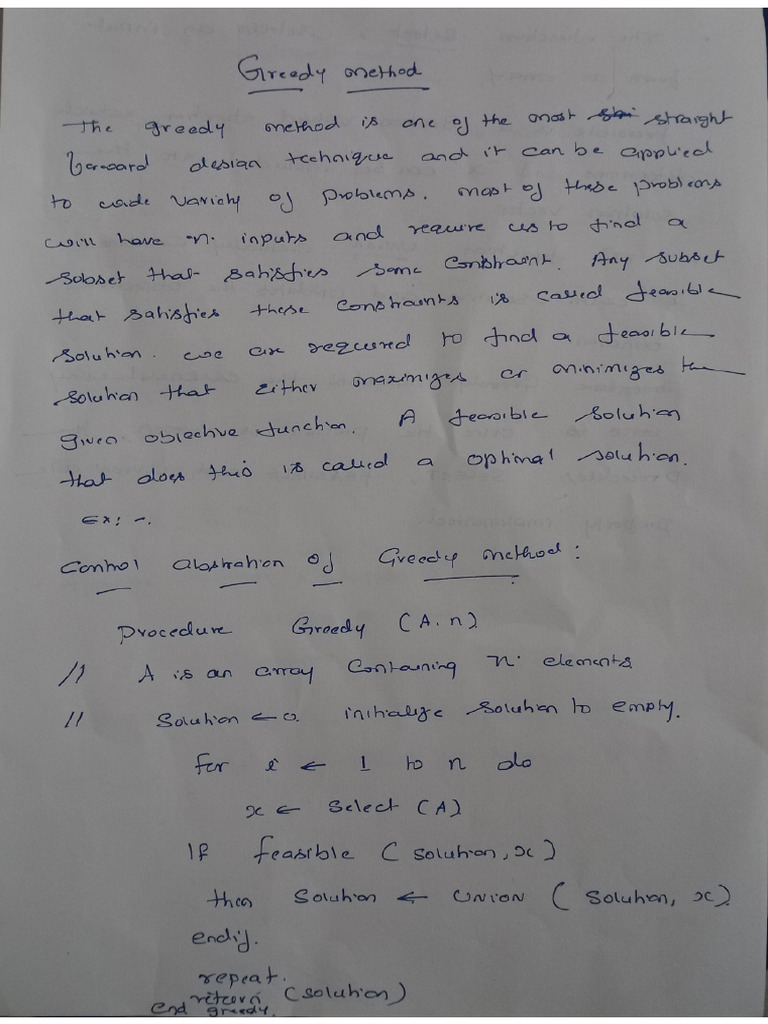 Greedy method
The greedy method is one of the most straight
forward design technique and it can be applied
to wade variety of problems. most of these problems
will have n. inputs and require us to find a
subset that satisfies some constraint. Any subset
that satisfies these constraints is called feasible
solution. we are required to find a feasible
solution that either maximizes or minimizes the
given objective function. A feasible solution
that does this is called a optimal solution.
Ex: -.
Control abstration of Greedy method:
Procedure Greedy (A.n)
// A is an array containing n. elements
// Solution ← o. initialize solution to empty.
for i ← 1 to n do
x ← Select (A)
If feasible (solution, x)
then solution ← UNION (solution, x)
endif.
repeat.
return (solution)
end greedy.